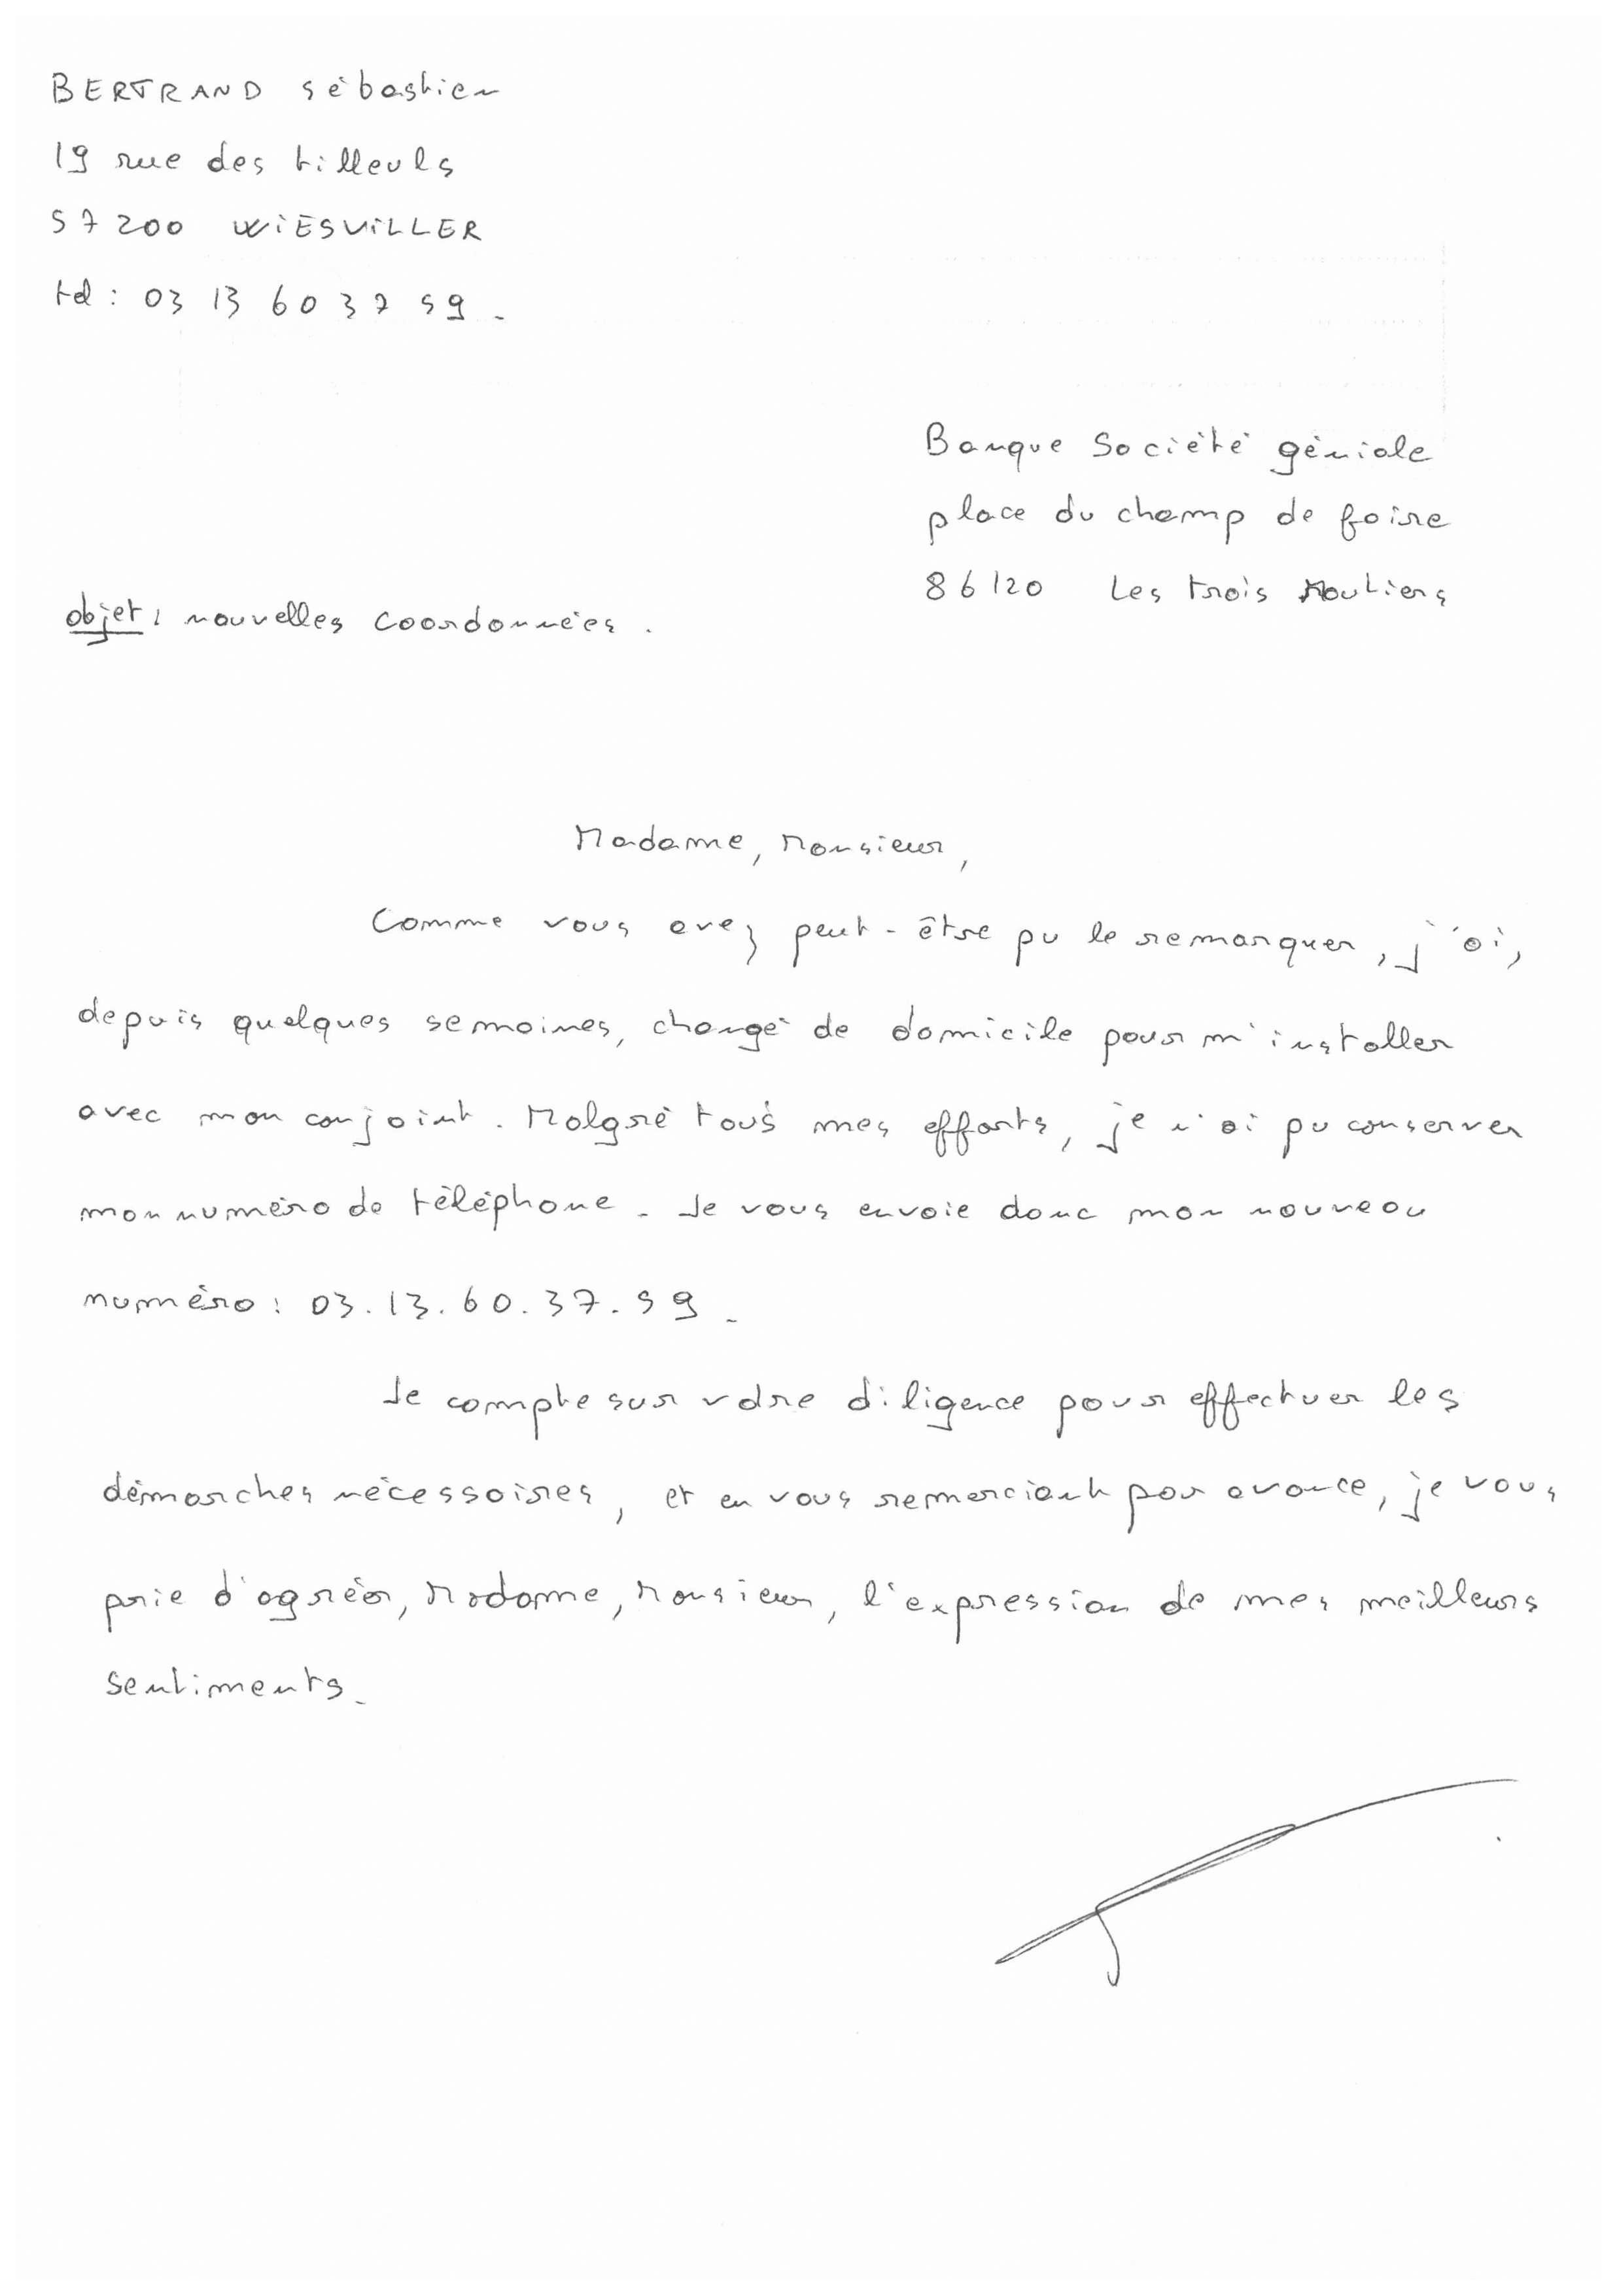 BERTRAND Sébastien
19 rue des tilleuls
57200 WIESVILLER
tel : 03 13 60 37 59.
Banque Société géniale
place du champ de foire
86120 Les trois Moutiers
objet : nouvelles coordonnées.
Madame, Monsieur,
Comme vous avez peut-être pu le remarquer, j'ai,
depuis quelques semaines, changé de domicile pour m'installer
avec mon conjoint. Malgré tous mes efforts, je n'ai pu conserver
mon numéro de téléphone. Je vous envoie donc mon nouveau
numéro : 03.13.60.37.59.
Je compte sur votre diligence pour effectuer les
démarches nécessaires, et en vous remerciant par avance, je vous
prie d'agréer, Madame, Monsieur, l'expression de mes meilleurs
sentiments.